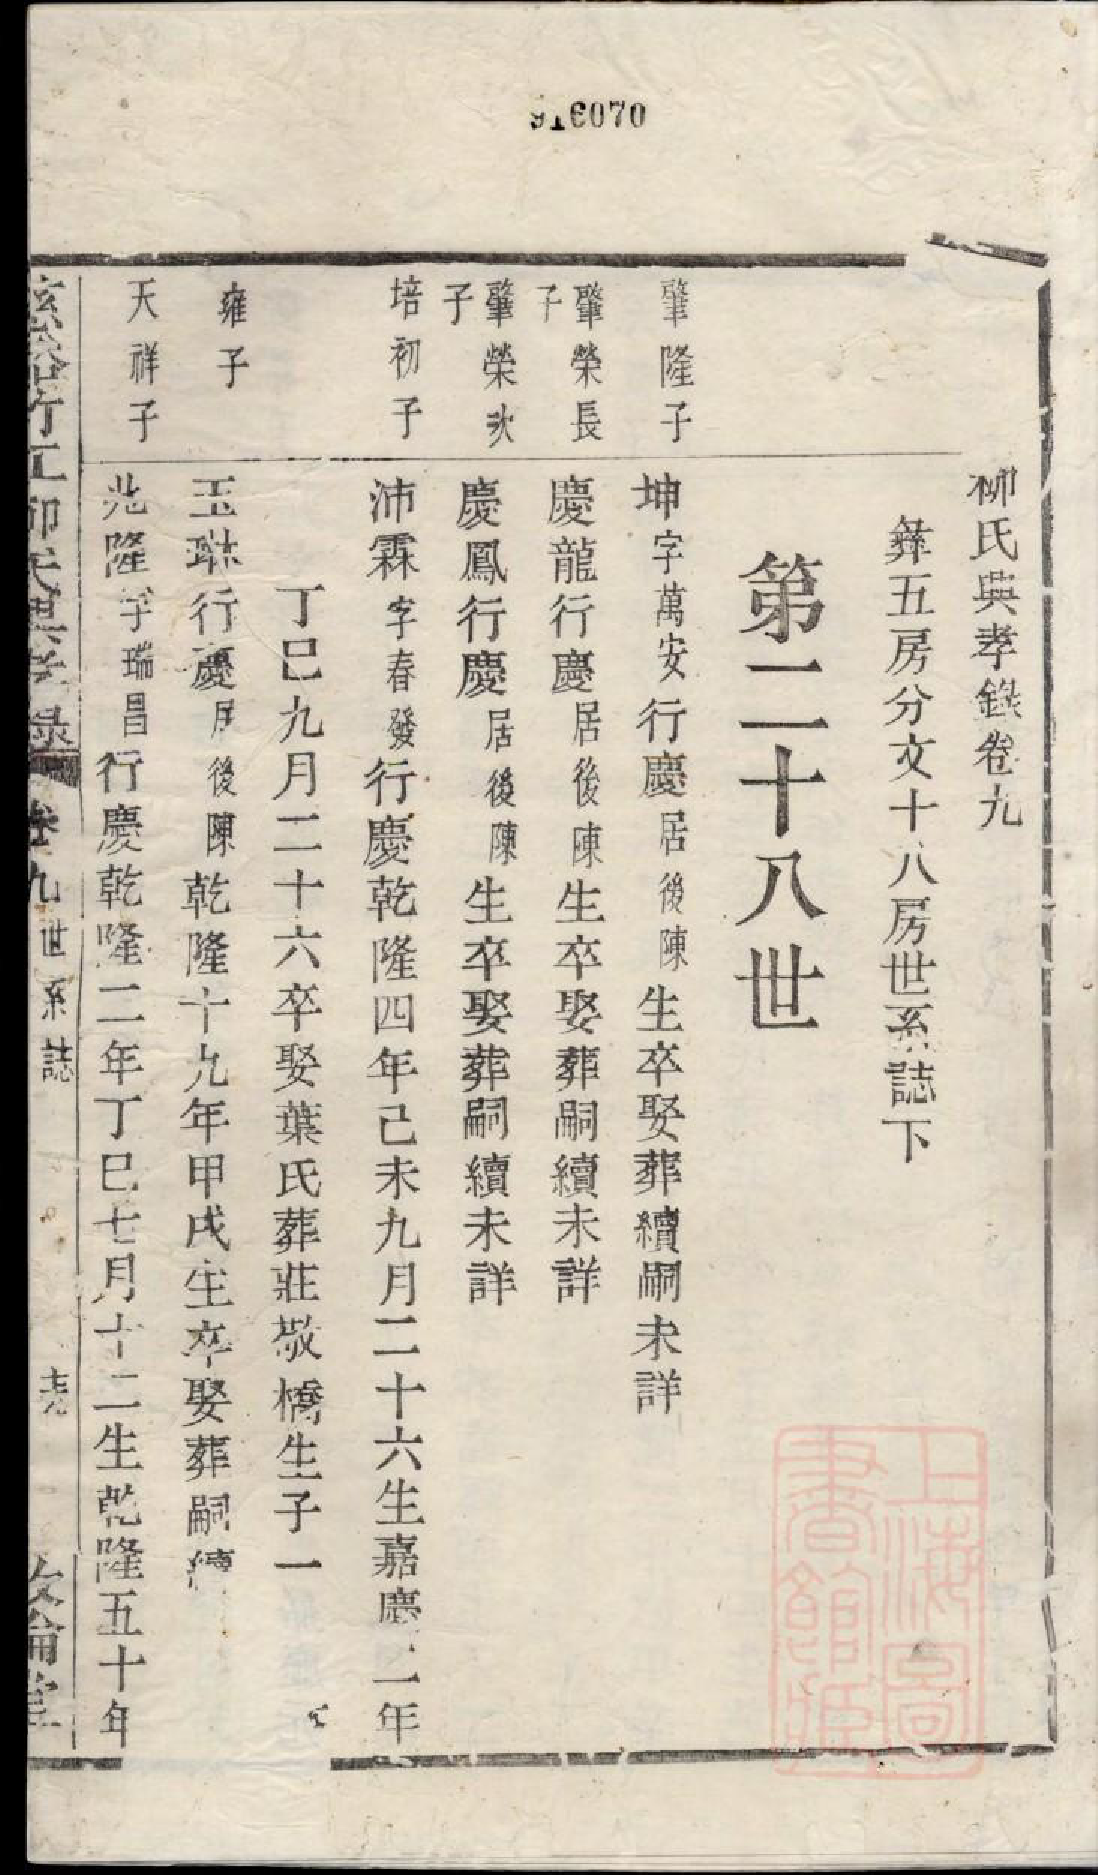 916070
柳氏興孝錄卷九
彝五房分文十八房世系誌下
第二十八世
肇隆子
坤字萬安行慶居後陳生卒娶葬續嗣未詳
肇榮長子
慶龍行慶居後陳生卒娶葬嗣續未詳
肇榮次子
慶鳳行慶居後陳生卒娶葬嗣續未詳
培初子
沛霖字春發行慶乾隆四年己未九月二十六生嘉慶二年
丁巳九月二十六卒娶葉氏葬莊敬橋生子一
雍子
玉琳行慶居後陳乾隆十九年甲戌生卒娶葬嗣續
天祥子
兆隆字瑞昌行慶乾隆二年丁巳七月十二生乾隆五十年
慈谿竹江柳氏興孝録 卷九世系誌 敘倫堂
上海圖書館藏